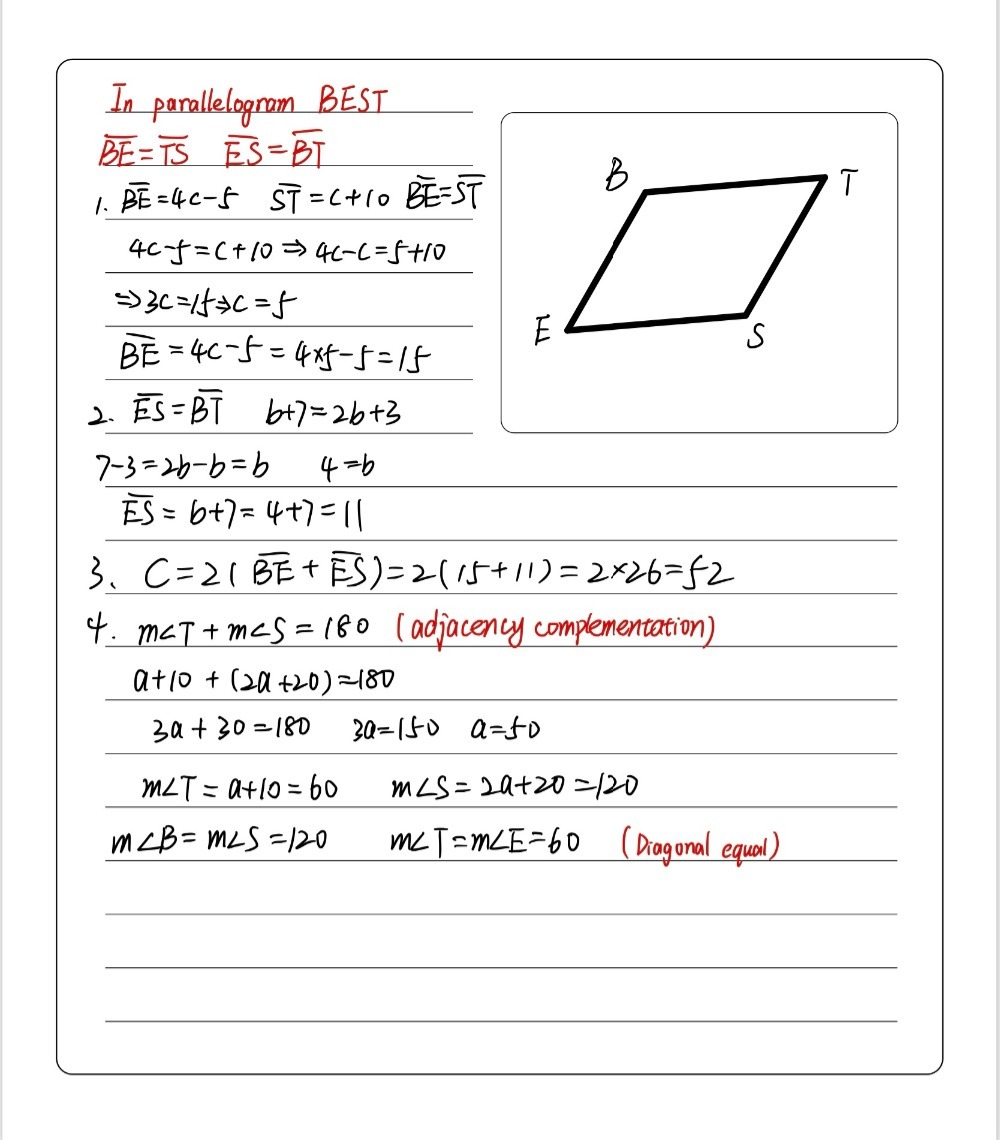 In parallelogram BEST
B̅E̅=T̅S̅ E̅S̅=B̅T̅
1. B̅E̅=4c-5 S̅T̅=c+10 B̅E̅=S̅T̅
4c-5=c+10⇒4c-c=5+10
⇒3c=15⇒c=5
B̅E̅=4c-5=4×5-5=15
2. E̅S̅=B̅T̅ b+7=2b+3
7-3=2b-b=b 4=b
E̅S̅=b+7=4+7=11
3、C=2(B̅E̅+E̅S̅)=2(15+11)=2×26=52
4. m∠T+m∠S=180 (adjacency complementation)
a+10+(2a+20)=180
3a+30=180 3a=150 a=50
m∠T=a+10=60 m∠S=2a+20=120
m∠B=m∠S=120 m∠T=m∠E=60 (Diagonal equal)
B
T
E
S